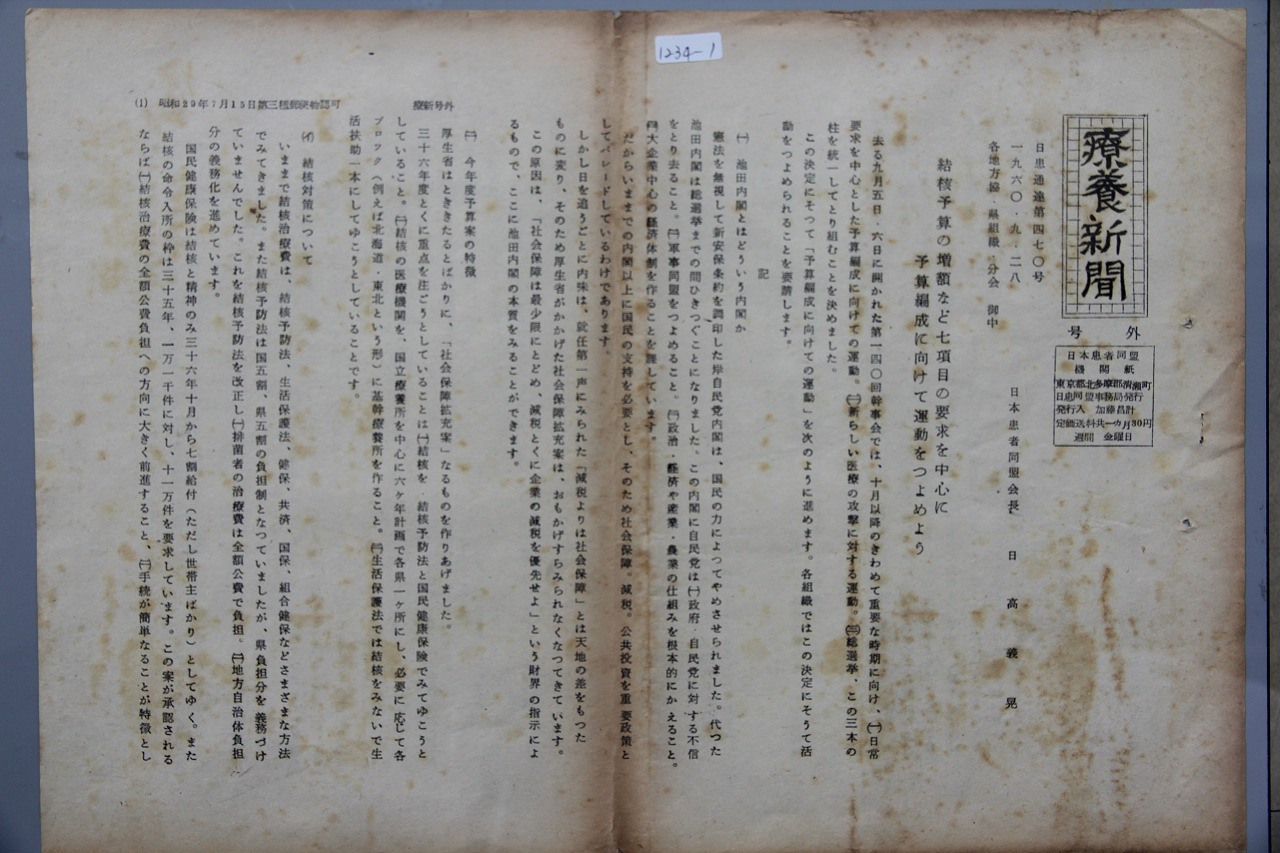 1234-1
療養新聞
号外
日本患者同盟
機関紙
東京都北多摩郡清瀬町
日患同盟事務局発行
発行人 加藤昌計
定価送料共一カ月30円
週間 金曜日
日患通達第四七〇号
一九六〇・九・二八
各地方協・県組織・分会 御中
日本患者同盟会長 日高義晃
結核予算の増額など七項目の要求を中心に
予算編成に向けて運動をつよめよう
去る九月五日・六日に開かれた第一四〇回幹事会では、十月以降のきわめて重要な時期に向け、㈠日常
要求を中心とした予算編成に向けての運動。㈡新らしい医療の攻撃に対する運動。㈢総選挙、この三本の
柱を統一してとり組むことを決めました。
この決定にそつて「予算編成に向けての運動」を次のように進めます。各組織ではこの決定にそうて活
動をつよめられることを要請します。
記
㈠ 池田内閣とはどういう内閣か
憲法を無視して新安保条約を調印した岸自民党内閣は、国民の力によつてやめさせられました。代つた
池田内閣は総選挙までの間ひきつぐことになりました。この内閣に自民党は㈠政府・自民党に対する不信
をとり去ること。㈡軍事同盟をつよめること。㈢政治・経済や産業・農業の仕組みを根本的にかえること。
㈣大企業中心の経済体制を作ることを課しています。
だからいままでの内閣以上に国民の支持を必要とし、そのため社会保障。減税。公共投資を重要政策と
してパレードしているわけであります。
しかし日を追うごとに内味は、就任第一声にみられた「減税よりは社会保障」とは天地の差をもつた
ものに変り、そのため厚生省がかかげた社会保障拡充案は、おもかげすらみられなくなつてきています。
この原因は、「社会保障は最少限にとどめ、減税とくに企業の減税を優先せよ」という財界の指示によ
るもので、ここに池田内閣の本質をみることができます。
㈡ 今年度予算案の特徴
厚生省はときたるとばかりに、「社会保障拡充案」なるものを作りあげました。
三十六年度とくに重点を注ごうとしていることは㈠結核を 結核予防法と国民健康保険でみてゆこうと
していること。㈡結核の医療機関を、国立療養所を中心に六ヶ年計画で各県一ヶ所にし、必要に応じて各
ブロック(例えば北海道・東北という形)に基幹療養所を作ること。㈢生活保護法では結核をみないで生
活扶助一本にしてゆこうとしていることです。
(イ) 結核対策について
いままで結核治療費は、結核予防法、生活保護法、健保、共済、国保、組合健保などさまざまな方法
でみてきました。また結核予防法は国五割、県五割の負担制となつていましたが、県負担分を義務づけ
ていませんでした。これを結核予防法を改正し㈠排菌者の治療費は全額公費で負担。㈡地方自治体負担
分の義務化を進めています。
国民健康保険は結核と精神のみ三十六年十月から七割給付(ただし世帯主ばかり)としてゆく。また
結核の命令入所の枠は三十五年、一万一千件に対し、十一万件を要求しています。この案が承認される
ならば㈠結核治療費の全額公費負担への方向に大きく前進すること、㈡手続が簡単なることが特徴とし
(1) 昭和29年7月15日第三種郵便物認可 療新号外